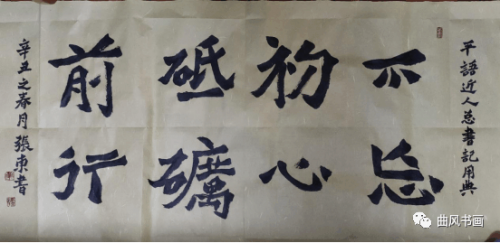 平語近人总書記用典
不忘
初心
砥礪
前行
辛丑之春月張東書
曲风书画